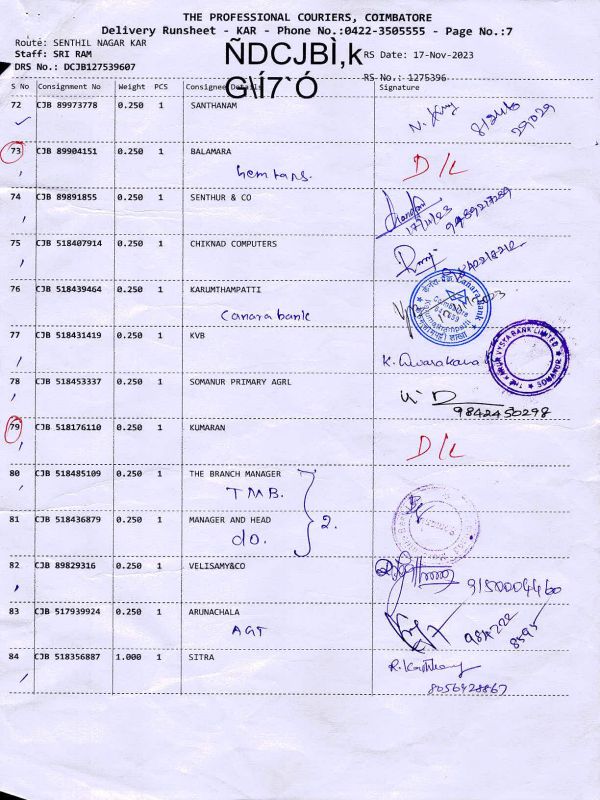 THE PROFESSIONAL COURIERS, COIMBATORE
Delivery Runsheet - KAR - Phone No.:0422-3505555 - Page No.:7
Route: SENTHIL NAGAR KAR
Staff: SRI RAM
RS Date: 17-Nov-2023
DRS No.: DCJB127539607
RS No.: 1275396
ÑDCJBÌ,k
G\Í7`Ó
S No Consignment No Weight PCS Consignee Details Signature
72 CJB 89973778 0.250 1 SANTHANAM
29029
73 CJB 89904151 0.250 1 BALAMARA D/L
74 CJB 89891855 0.250 1 SENTHUR & CO
17/11/23
75 CJB 518407914 0.250 1 CHIKNAD COMPUTERS
76 CJB 518439464 0.250 1 KARUMTHAMPATTI
Canara bank
77 CJB 518431419 0.250 1 KVB
THE KARUR VYSYA BANK LIMITED SOMANUR
78 CJB 518453337 0.250 1 SOMANUR PRIMARY AGRL
9842450298
79 CJB 518176110 0.250 1 KUMARAN D/L
80 CJB 518485109 0.250 1 THE BRANCH MANAGER
TMB.
2.
81 CJB 518436879 0.250 1 MANAGER AND HEAD
do.
82 CJB 89829316 0.250 1 VELISAMY&CO
9150004460
83 CJB 517939924 0.250 1 ARUNACHALA
AGT
8595
84 CJB 518356887 1.000 1 SITRA
8056428867